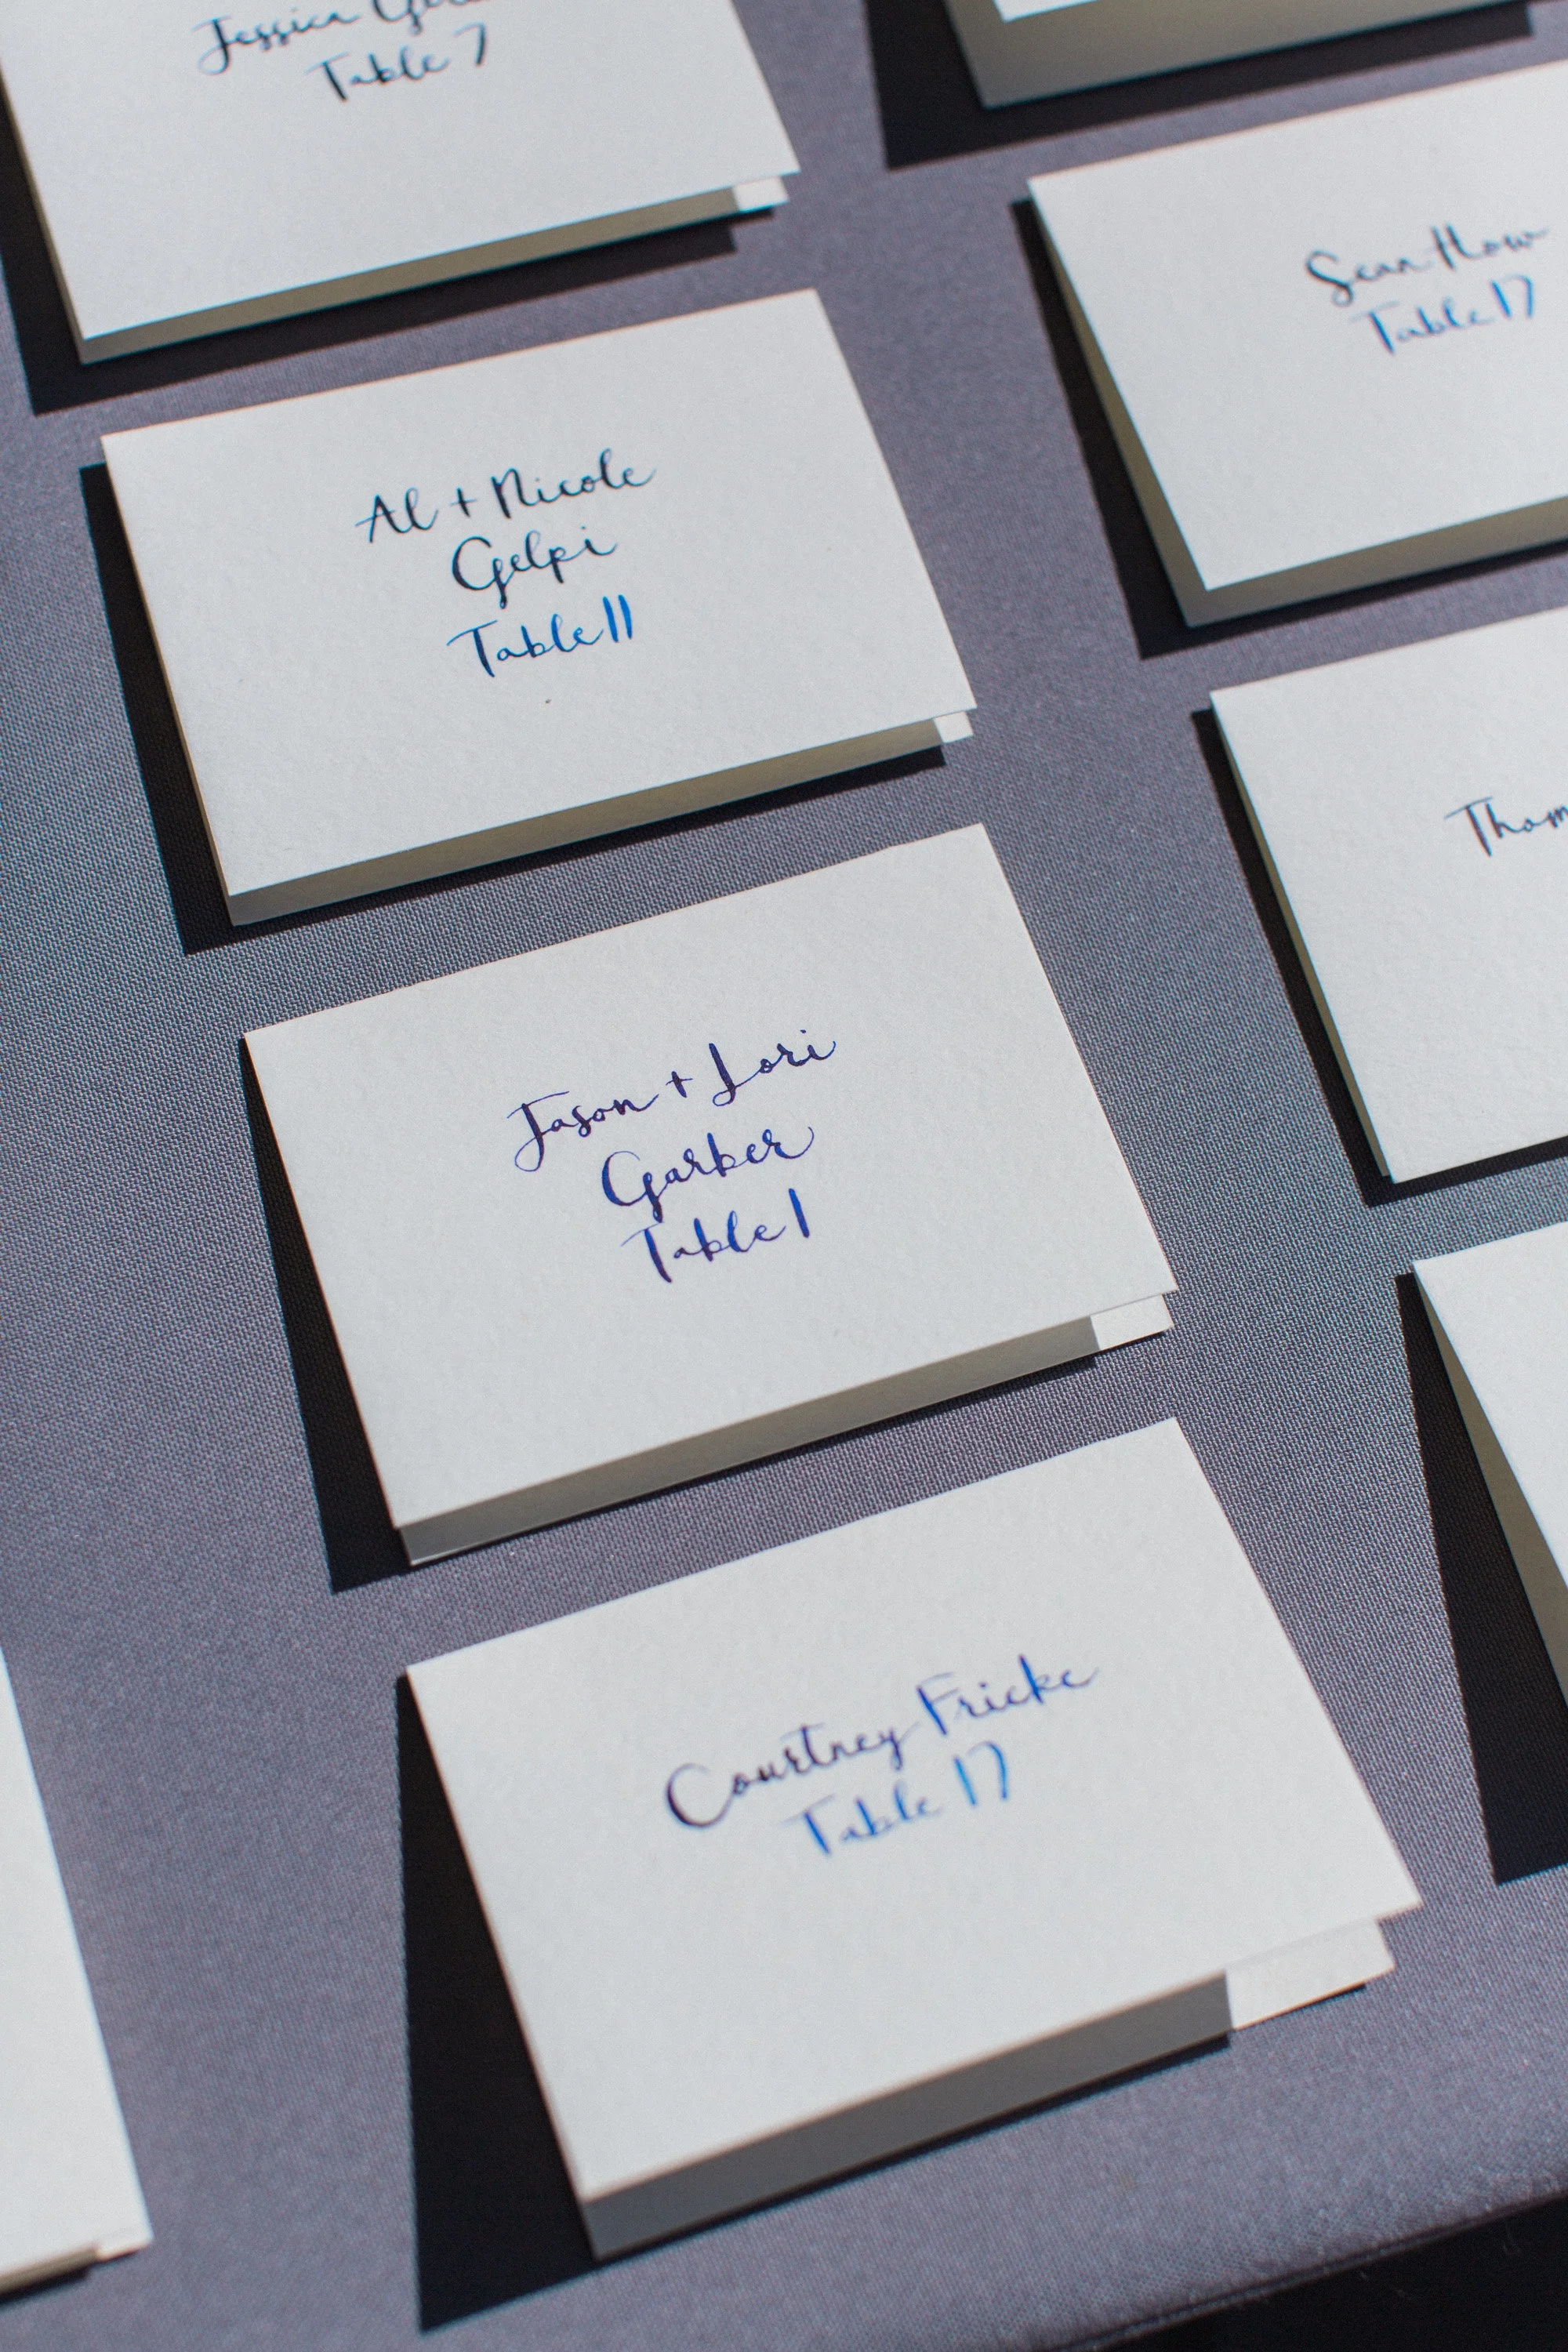 Jessica
Table 7
Al + Nicole
Gelpi
Table 11
Jason + Lori
Garber
Table 1
Courtney Fricke
Table 17
Sean How
Table 17